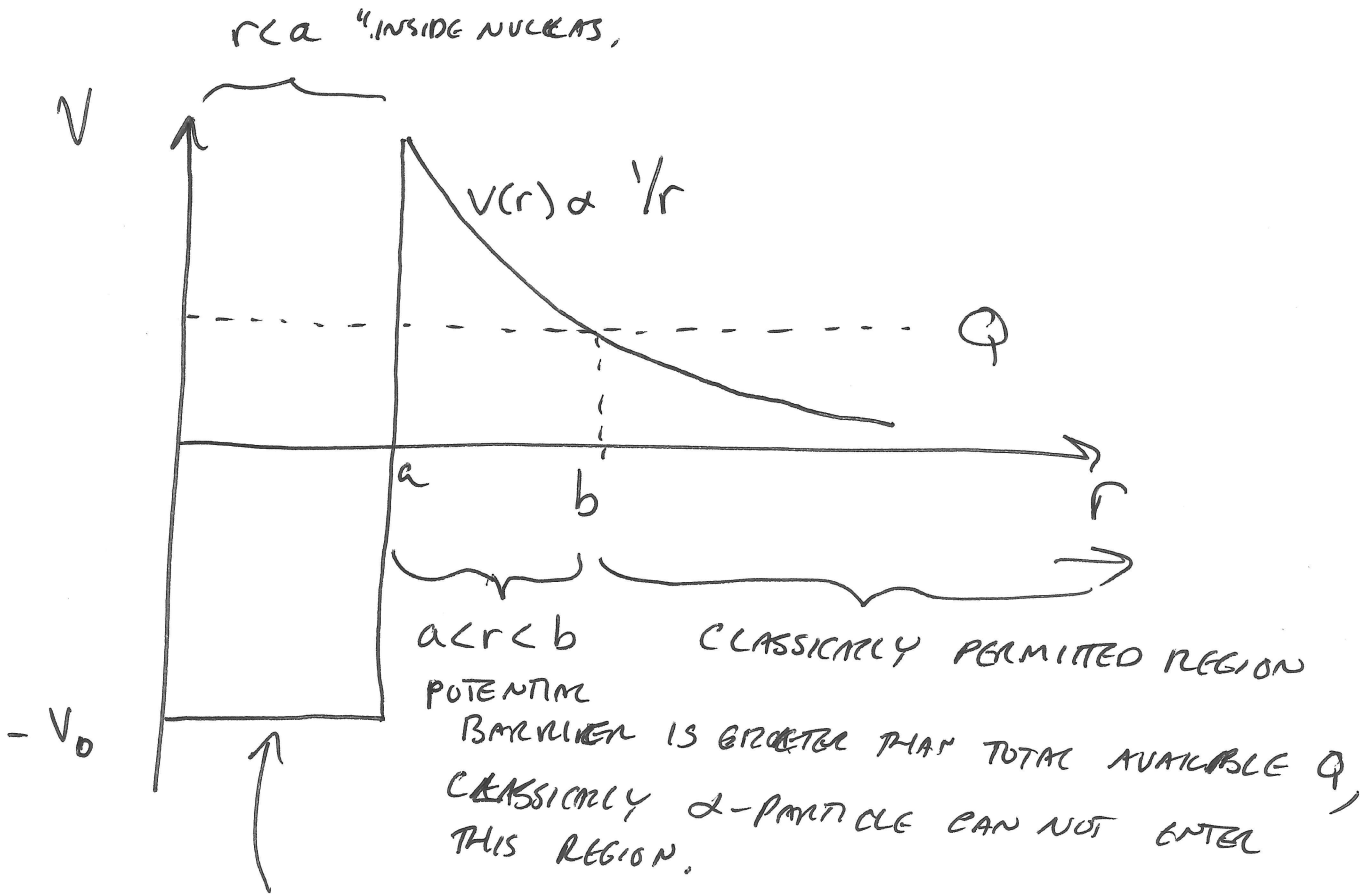 r<a "INSIDE NUCLEAS,
V
V(r) α 1/r
Q
a
b
r
a<r<b
CLASSICALLY PERMITTED REGION
POTENTIAL
BARRIER IS GREATER THAN TOTAL AVAILABLE Q,
CLASSICALLY α-PARTICLE CAN NOT ENTER
THIS REGION.
-V₀